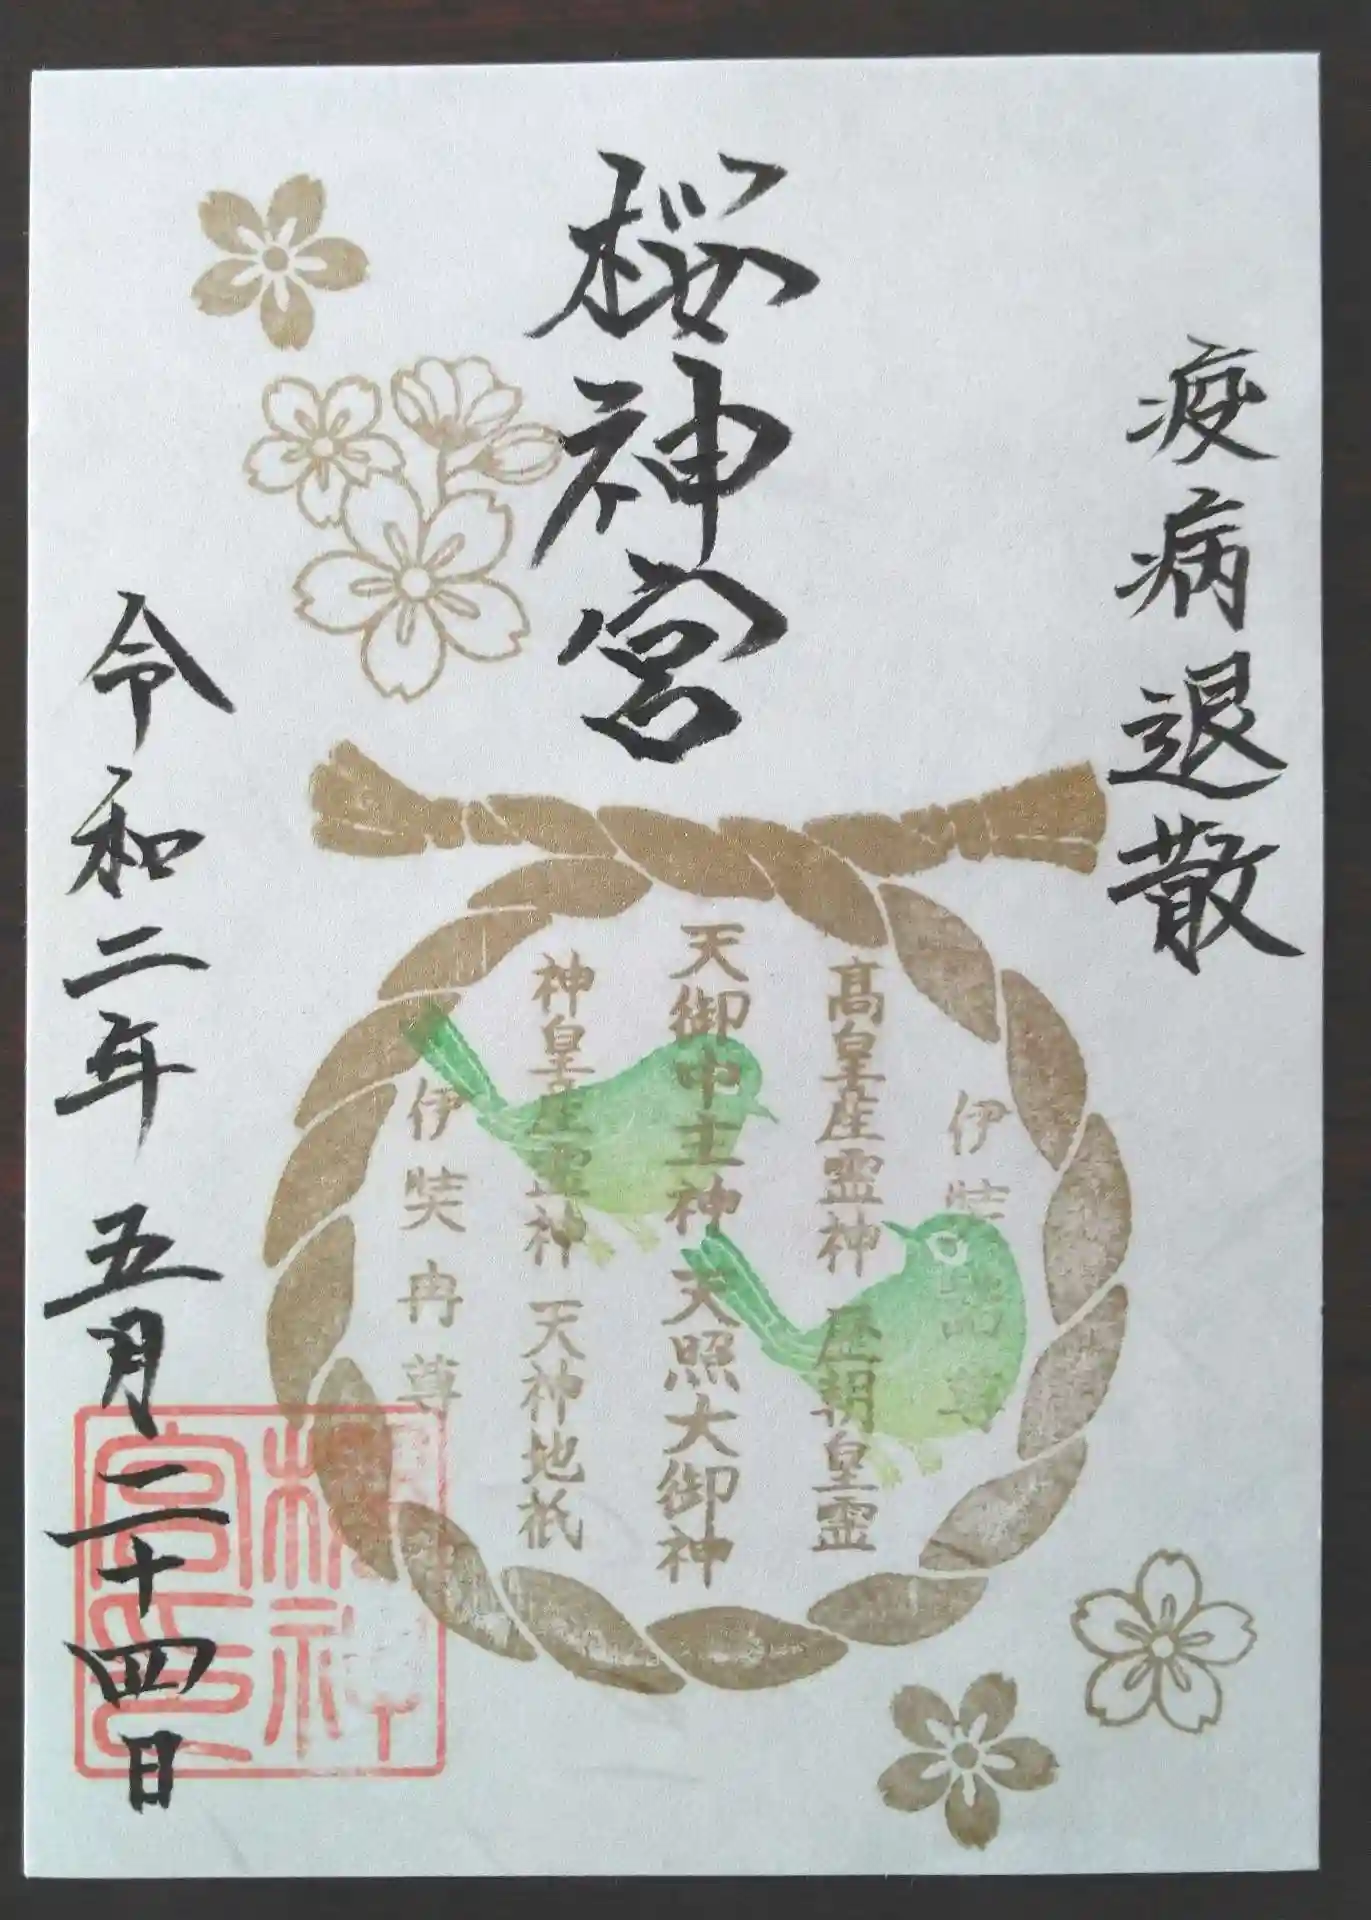 疫病退散
桜神宮
伊弉諾尊
高皇産霊神 歴朝皇霊
天御中主神 天照大御神
神皇産霊神 天神地祇
伊弉冉尊
令和二年 五月二十四日
桜神
宮印